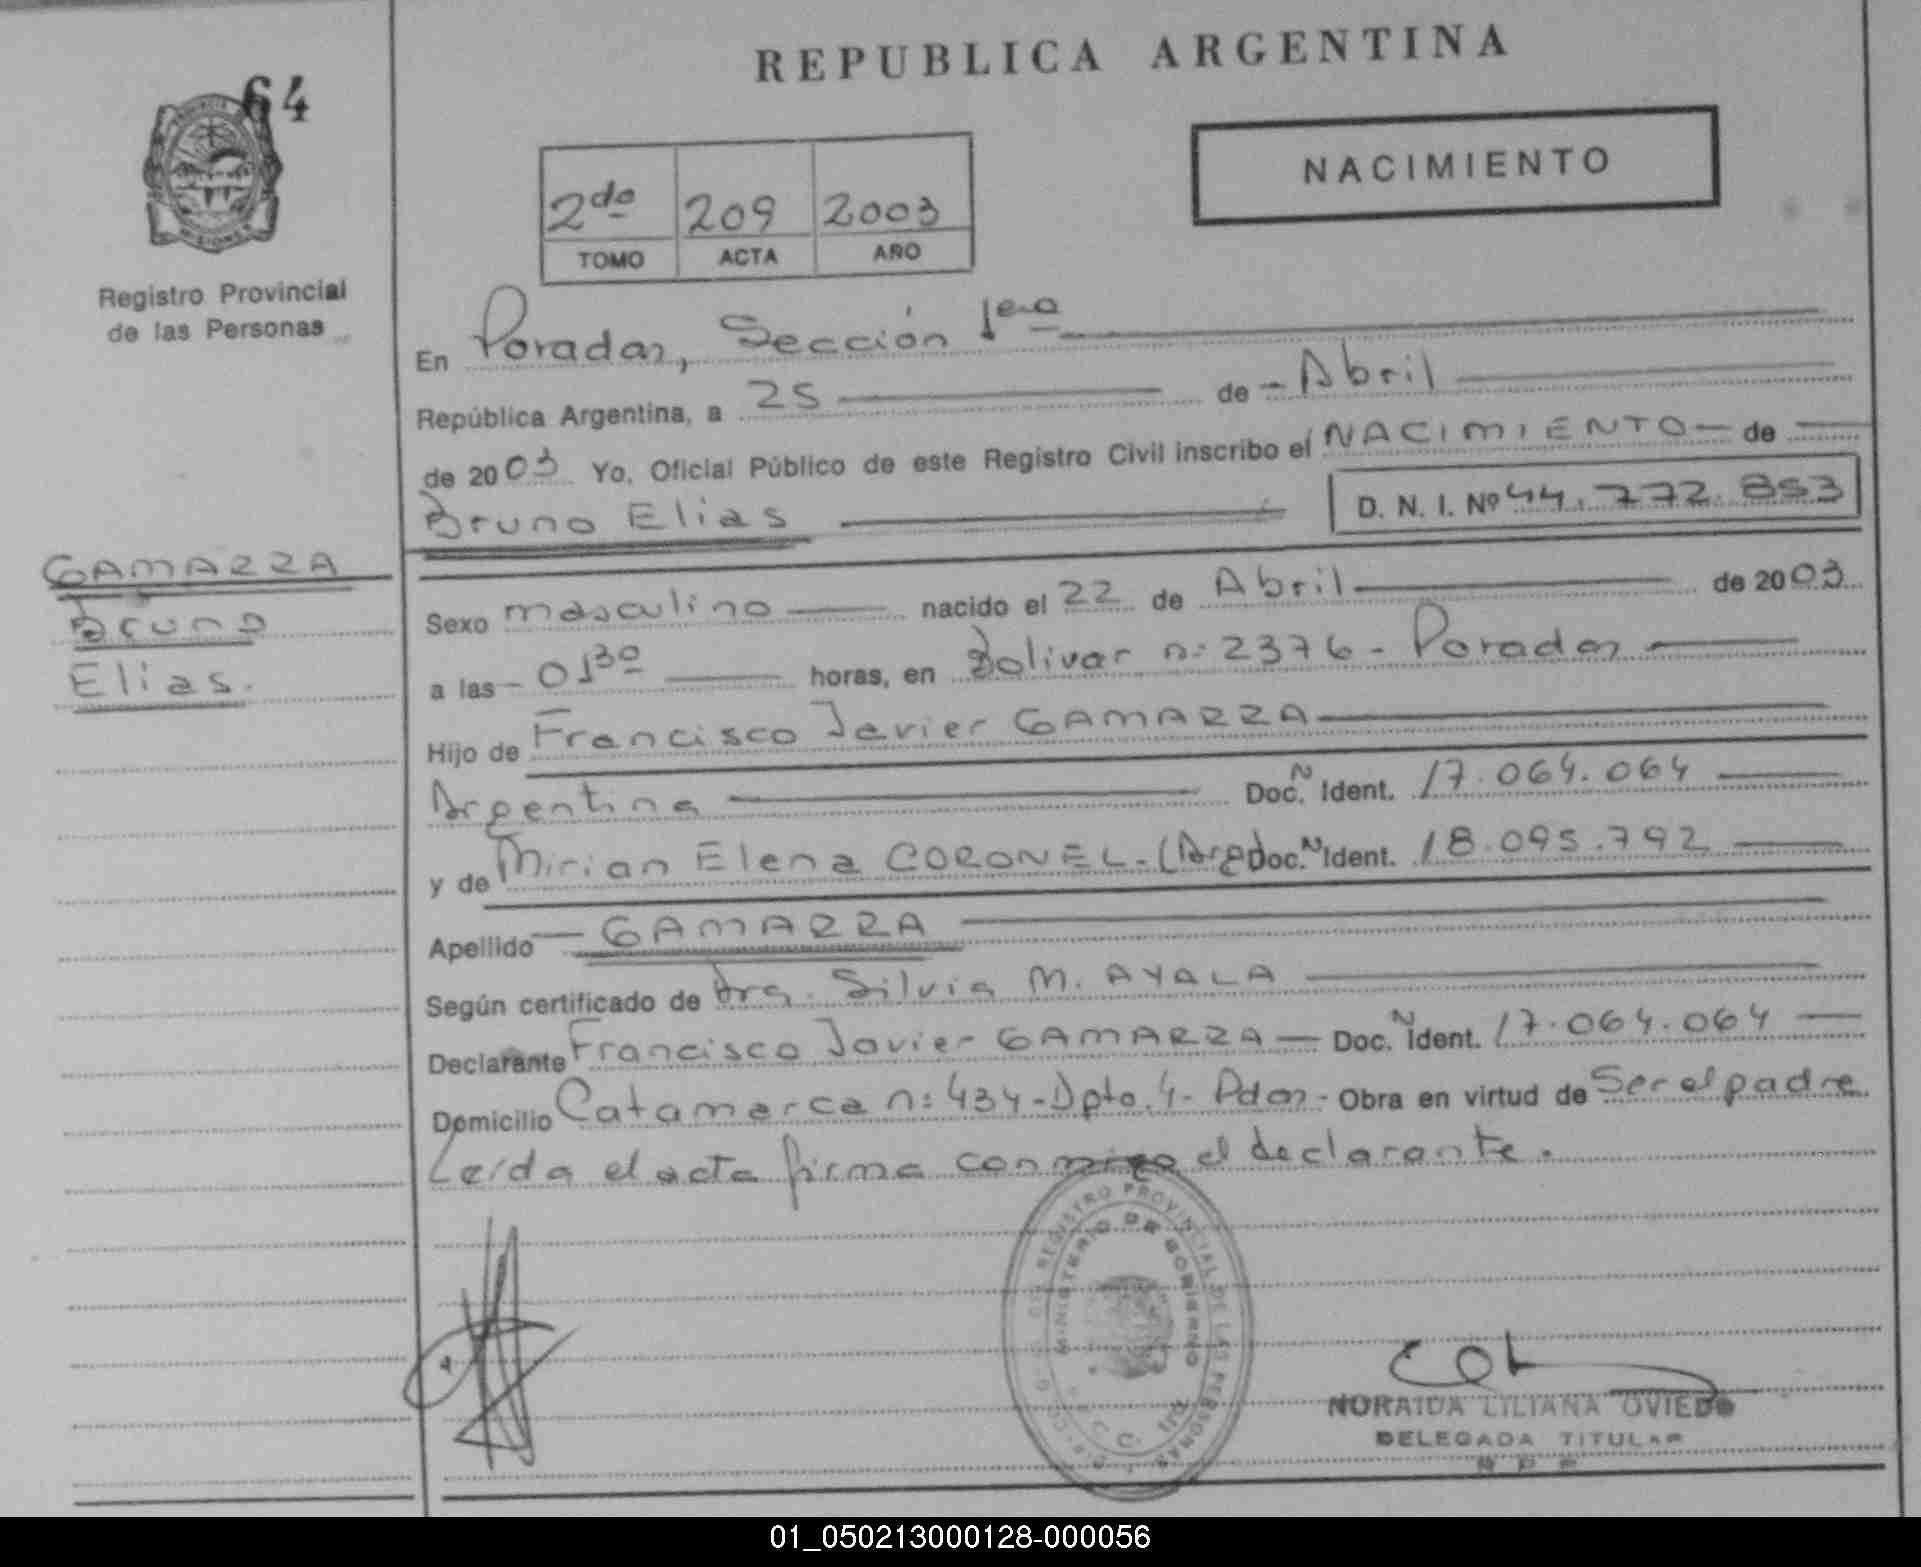 REPUBLICA ARGENTINA
64
PROVINCIA
MISIONES
Registro Provincial
de las Personas
NACIMIENTO
2do 209 2003
TOMO ACTA AÑO
En Posadas, Sección 1era
República Argentina, a 25 de Abril
de 2003 Yo, Oficial Público de este Registro Civil inscribo el NACIMIENTO de
Bruno Elias D. N. I. Nº 44.772.853
GAMARRA
Bruno
Elias.
Sexo masculino nacido el 22 de Abril de 2003
a las 01 30 horas, en Bolivar n: 2376 - Posadas
Hijo de Francisco Javier GAMARRA
Argentina Doc. N Ident. 17.064.064
y de Mirian Elena CORONEL. (Arg. Doc. N Ident. 18.095.792
Apellido GAMARRA
Según certificado de Dra. Silvia M. AYALA
Declarante Francisco Javier GAMARRA Doc. N Ident. 17.064.064
Domicilio Catamarca n: 434 - Dpto. 4 - Pdas - Obra en virtud de Ser el padre
Leída el acta firma conmigo el declarante.
REGISTRO PROVINCIAL DE LAS PERSONAS
MINISTERIO DE GOBIERNO
NORAIDA LILIANA OVIEDO
DELEGADA TITULAR
R P P
01_050213000128-000056